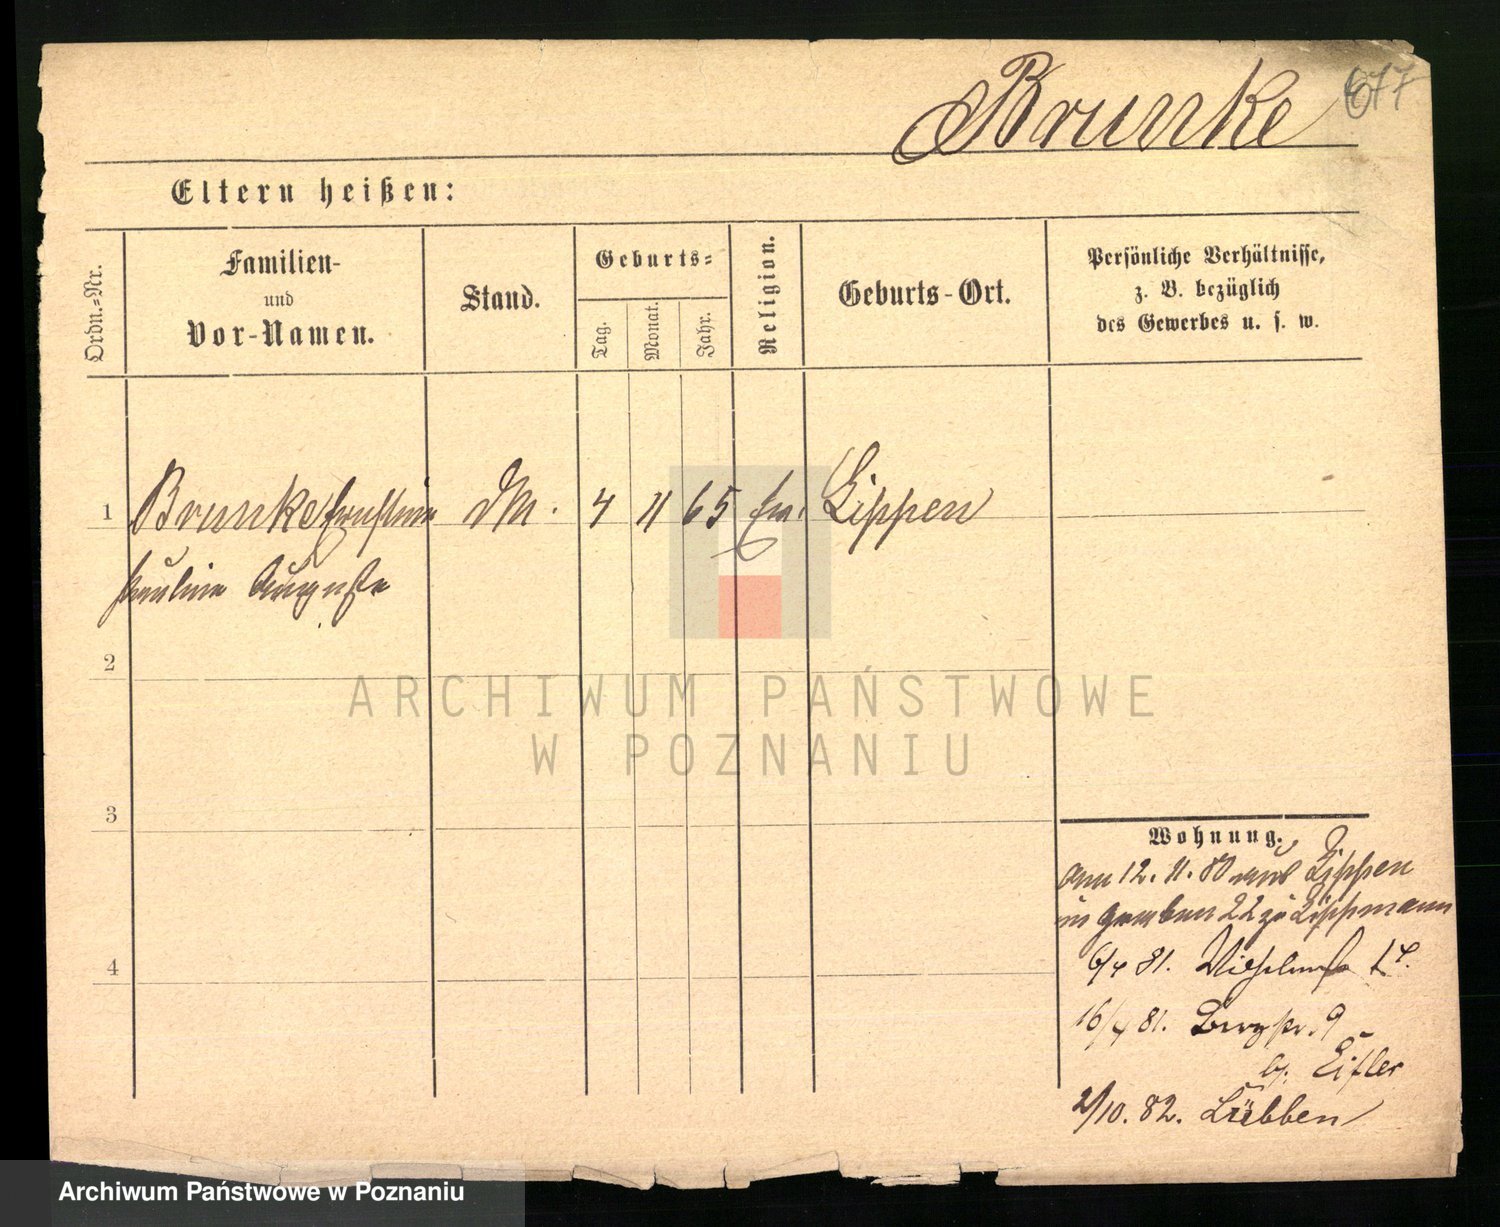 Brunke 677
Eltern heißen:
Ordn.=Nr.
Familien-
und
Vor-Namen.
Stand.
Geburts=
Tag.
Monat.
Jahr.
Religion.
Geburts-Ort.
Persönliche Verhältnisse,
z. B. bezüglich
des Gewerbes u. s. w.
1 Brunke Ernstine DM. 4 11 65 Ev. Lippen
Pauline Auguste
2
3
4
Wohnung.
Am 12. 11. 80 aus Lippen
in 22 zu Lippmann
6/4 81.
16/4 81. Bergstr. 9
b. Eifler
2/10. 82. Lübben
ARCHIWUM PAŃSTWOWE
W POZNANIU
Archiwum Państwowe w Poznaniu